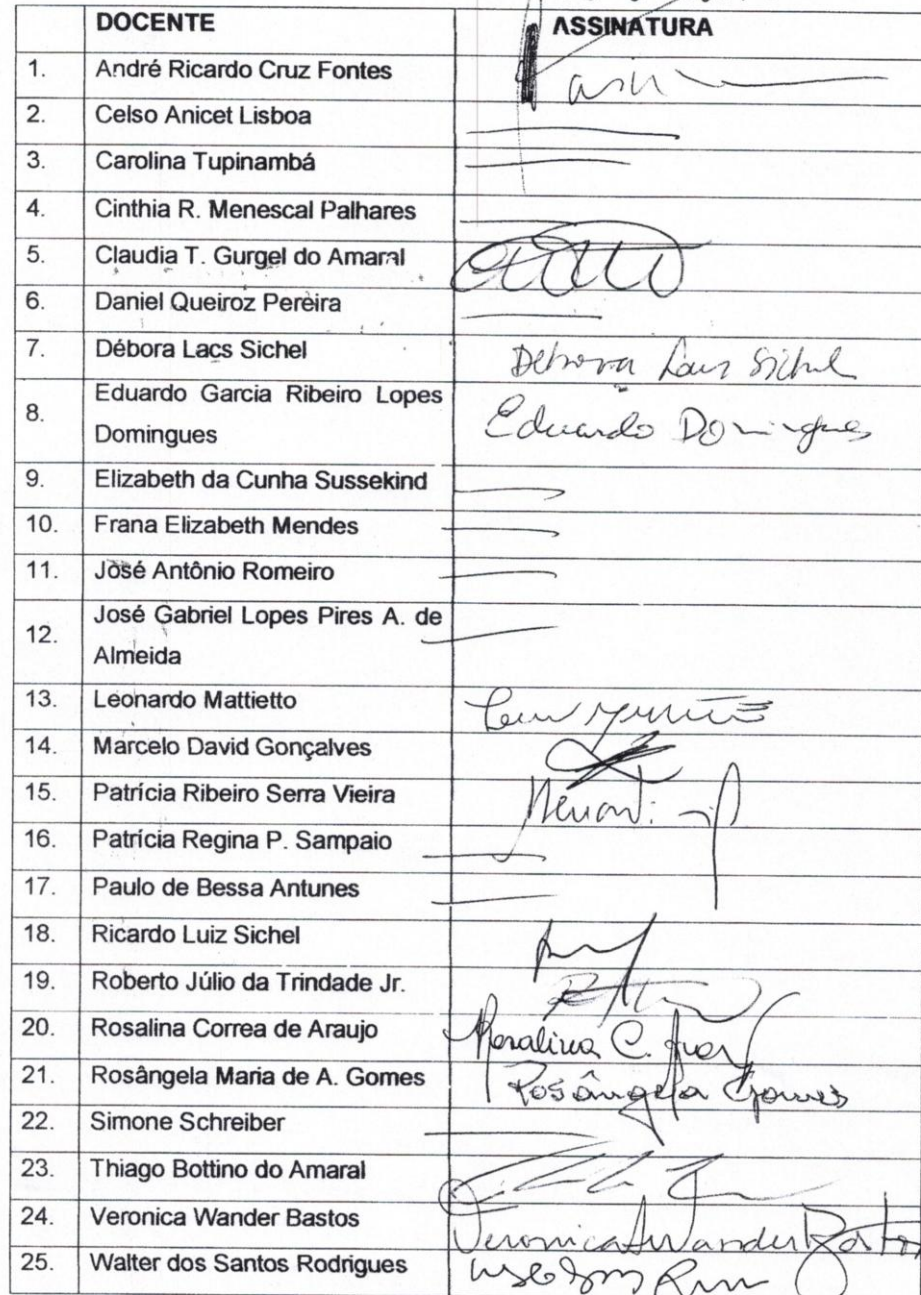 DOCENTE ASSINATURA
1. André Ricardo Cruz Fontes
2. Celso Anicet Lisboa
3. Carolina Tupinambá
4. Cinthia R. Menescal Palhares
5. Claudia T. Gurgel do Amaral
6. Daniel Queiroz Pereira
7. Débora Lacs Sichel Debora Lacs Sichel
8. Eduardo Garcia Ribeiro Lopes
Domingues Eduardo Domingues
9. Elizabeth da Cunha Sussekind
10. Frana Elizabeth Mendes
11. José Antônio Romeiro
12. José Gabriel Lopes Pires A. de
Almeida
13. Leonardo Mattietto
14. Marcelo David Gonçalves
15. Patrícia Ribeiro Serra Vieira
16. Patrícia Regina P. Sampaio
17. Paulo de Bessa Antunes
18. Ricardo Luiz Sichel
19. Roberto Júlio da Trindade Jr.
20. Rosalina Correa de Araujo Rosalina C.
21. Rosângela Maria de A. Gomes Rosângela Gomes
22. Simone Schreiber
23. Thiago Bottino do Amaral
24. Veronica Wander Bastos Veronica Wander Bastos
25. Walter dos Santos Rodrigues